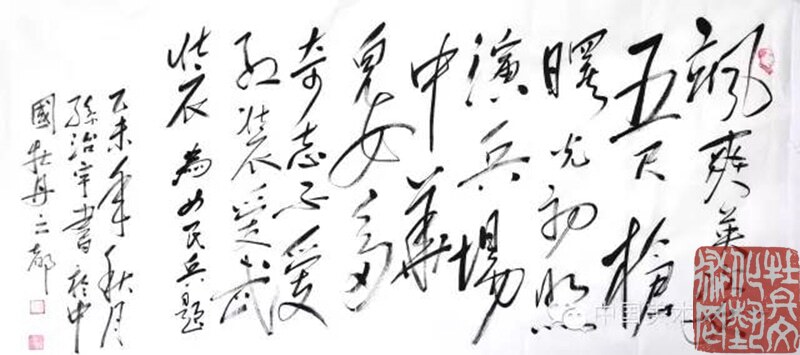 颯爽英
五尺槍
曙光初照
演兵場
中華
兒女多
奇志不愛
紅裝愛武
裝 為女民兵題
乙未年秋月
孫治宇書於中
國牡丹之都